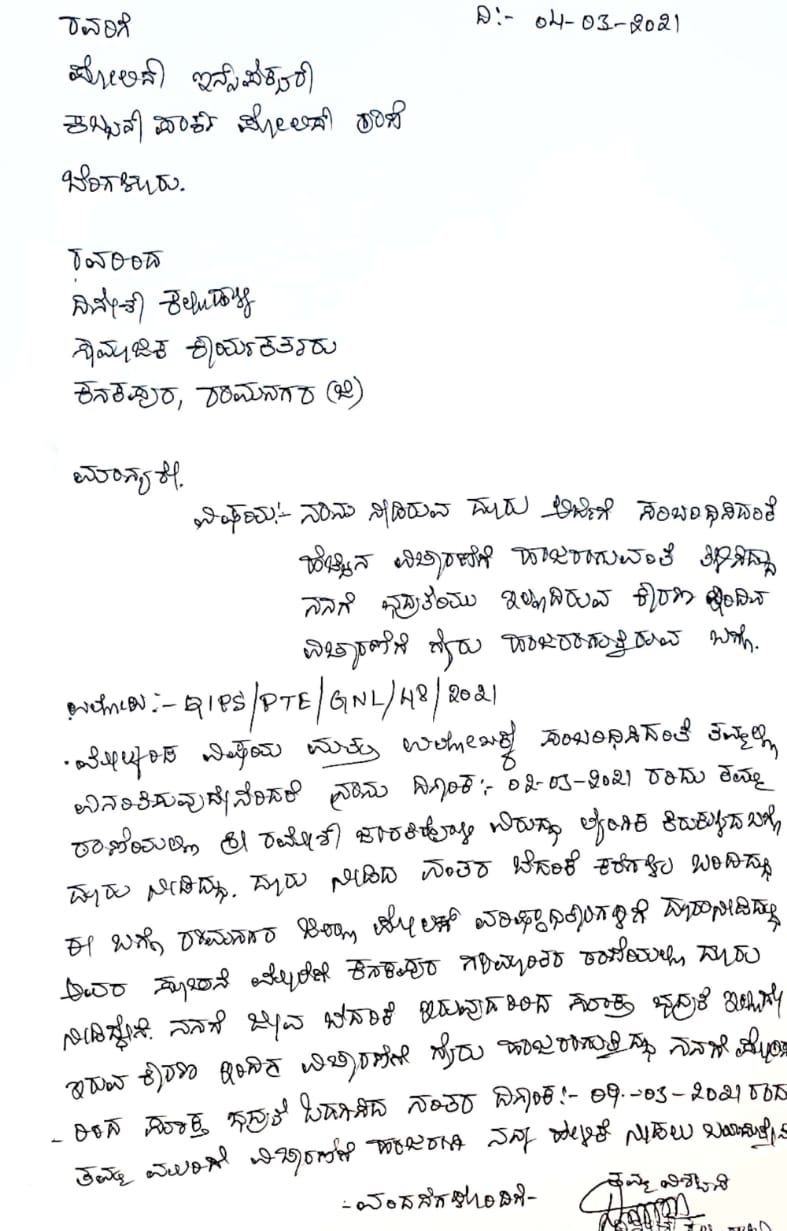 ರವರಿಗೆ
ದಿ:- 04-03-2021
ಪೋಲಿಸ್ ಇನ್ಸ್‌ಪೆಕ್ಟರ್
ಕಬ್ಬನ್ ಪಾರ್ಕ್ ಪೋಲಿಸ್ ಠಾಣೆ
ಬೆಂಗಳೂರು.
ರವರಿಂದ
ದಿನೇಶ್ ಕಲ್ಲಹಳ್ಳಿ
ಸಾಮಾಜಿಕ ಕಾರ್ಯಕರ್ತರು
ಕನಕಪುರ, ರಾಮನಗರ (ಜಿ)
ಮಾನ್ಯರೇ.
ವಿಷಯ:- ನಾನು ನೀಡಿರುವ ದೂರು ಅರ್ಜಿಗೆ ಸಂಬಂಧಿಸಿದಂತೆ
ಹೆಚ್ಚಿನ ವಿಚಾರಣೆಗೆ ಹಾಜರಾಗುವಂತೆ ತಿಳಿಸಿದ್ದು
ನನಗೆ ಭದ್ರತೆಯು ಇಲ್ಲದಿರುವ ಕಾರಣ ಇಂದಿನ
ವಿಚಾರಣೆಗೆ ಗೈರು ಹಾಜರಾಗುತ್ತಿರುವ ಬಗ್ಗೆ.
ಉಲ್ಲೇಖ:- PTE/GNL/48/2021
ಮೇಲ್ಕಂಡ ವಿಷಯ ಮತ್ತು ಉಲ್ಲೇಖಕ್ಕೆ ಸಂಬಂಧಿಸಿದಂತೆ ತಮ್ಮಲ್ಲಿ
ವಿನಂತಿಸುವುದೇನೆಂದರೆ ನಾನು ದಿನಾಂಕ:- 02-03-2021 ರಂದು ತಮ್ಮ
ಠಾಣೆಯಲ್ಲಿ ಶ್ರೀ ರಮೇಶ್ ಜಾರಕಿಹೊಳಿ ವಿರುದ್ಧ ಲೈಂಗಿಕ ಕಿರುಕುಳದ ಬಗ್ಗೆ
ದೂರು ನೀಡಿದ್ದು. ದೂರು ನೀಡಿದ ನಂತರ ಬೆದರಿಕೆ ಕರೆಗಳು ಬಂದಿದ್ದು
ಈ ಬಗ್ಗೆ ರಾಮನಗರ ಜಿಲ್ಲಾ ಪೋಲಿಸ್ ವರಿಷ್ಠಾಧಿಕಾರಿಗಳಿಗೆ ದೂರುನೀಡಿದ್ದು
ಅವರ ಸೂಚನೆ ಮೇರೆಗೆ ಕನಕಪುರ ಗ್ರಾಮಾಂತರ ಠಾಣೆಯಲ್ಲಿ ದೂರು
ನೀಡಿದ್ದೇನೆ. ನನಗೆ ಜೀವ ಬೆದರಿಕೆ ಇರುವುದರಿಂದ ಸೂಕ್ತ ಭದ್ರತೆ ಇಲ್ಲದೇ
ಇರುವ ಕಾರಣ ಇಂದಿನ ವಿಚಾರಣೆಗೆ ಗೈರು ಹಾಜರಾಗುತ್ತಿದ್ದು ನನಗೆ
ಸೂಕ್ತ ಭದ್ರತೆ ಒದಗಿಸಿದ ನಂತರ ದಿನಾಂಕ:- 09-03-2021 ರಂದು
ತಮ್ಮ ವಿಚಾರಣೆಗೆ ಹಾಜರಾಗಿ ನನ್ನ ಹೇಳಿಕೆ ನೀಡಲು
-ವಂದನೆಗಳೊಂದಿಗೆ-
ತಮ್ಮ ವಿಶ್ವಾಸಿ